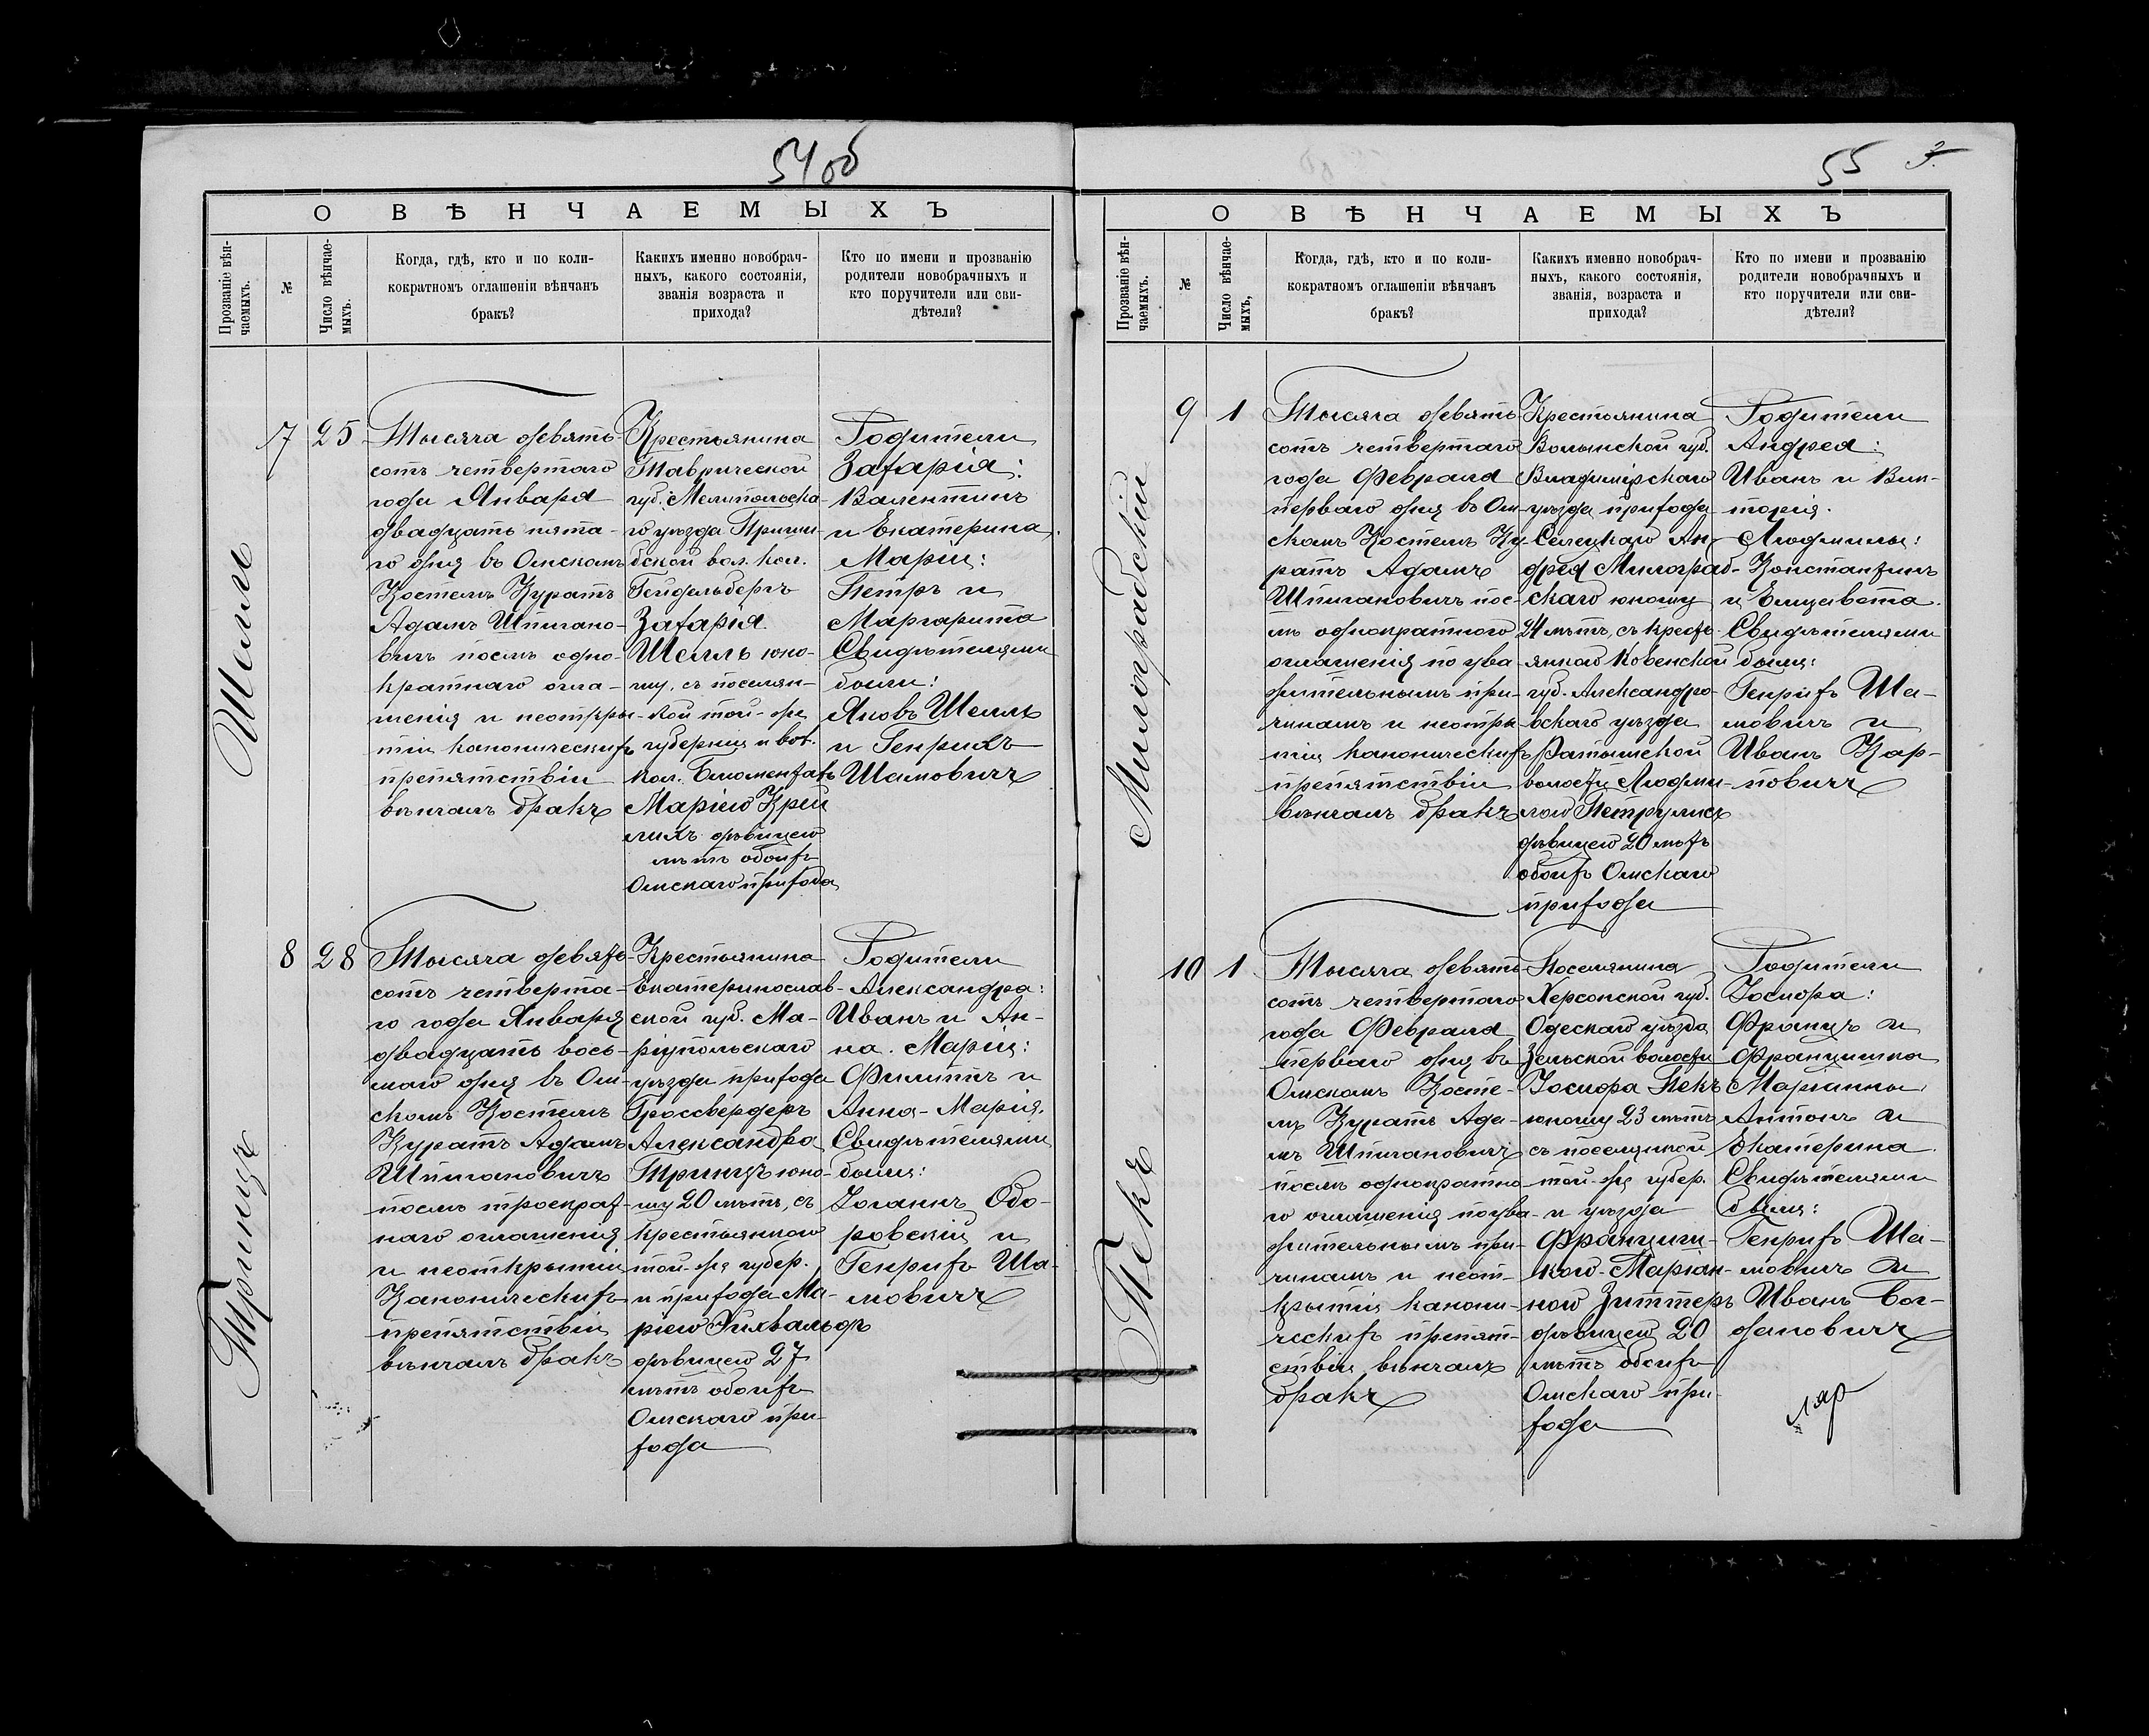 54 об
О ВѢНЧАЕМЫХЪ
Прозваніе вѣн-
чаемыхъ.
№
Число вѣнчае-
мыхъ.
Когда, гдѣ, кто и по коли-
кократномъ оглашеніи вѣнчанъ
бракъ?
Какихъ именно новобрач-
ныхъ, какого состоянія,
званія возраста и
прихода?
Кто по имени и прозванію
родители новобрачныхъ и
кто поручители или сви-
дѣтели?
Шелль
7
25
Тысяча девять-
сотъ четвертаго
года Января
двадцать пята-
го дня въ Омскомъ
Костелѣ Куратъ
Адамъ Шпигано-
вичъ послѣ одно-
кратнаго огла-
шенія и неоткры-
тіи каноническихъ
препятствіи
вѣнчалъ бракъ
Крестьянина
Таврической
губ. Мелитопольска-
го уѣзда Приши-
бской вол. кол.
Гейдельбергъ
Захарія
Шелль юно-
шу, съ поселян-
кой той-же
губерніи и вол.
кол. Блюменталь
Маріею Крей
лихъ дѣвицею
лѣтъ обоихъ
Омскаго прихода
Родители
Захарія:
Валентинъ
и Екатерина.
Маріи:
Петръ и
Маргарита
Свидѣтелями
были:
Яковъ Шелль
и Генрихъ
Шамовичъ
Тринцъ
8
28
Тысяча девять-
сотъ четверта-
го года Января
двадцать вось-
маго дня въ Ом-
скомъ Костелѣ
Куратъ Адамъ
Шпигановичъ
послѣ троекрат-
наго оглашенія
и неоткрытіи
Каноническихъ
препятствіи
вѣнчалъ бракъ
Крестьянина
Екатеринослав-
ской губ. Ма-
ріупольскаго
уѣзда прихода
Гроссвердеръ
Александра
Тринцъ юно-
шу 20 лѣтъ, съ
крестьянкою
той-же губер.
и прихода Ма-
ріею Рихвальдъ
дѣвицею 27
лѣтъ обоихъ
Омскаго при-
хода
Родители
Александра:
Иванъ и Ан-
на. Маріи:
Филиппъ и
Анна-Марія.
Свидѣтелями
были:
Іоганнъ Одо-
ровскій и
Генрихъ Ша-
мовичъ
55
3.
О ВѢНЧАЕМЫХЪ
Прозваніе вѣн-
чаемыхъ.
№
Число вѣнчае-
мыхъ,
Когда, гдѣ, кто и по коли-
кократномъ оглашеніи вѣнчанъ
бракъ?
Какихъ именно новобрач-
ныхъ, какого состоянія,
званія, возраста и
прихода?
Кто по имени и прозванію
родители новобрачныхъ и
кто поручители или сви-
дѣтели?
Милоградскій
9
1
Тысяча девять
сотъ четвертаго
года Февраля
перваго дня въ Ом-
скомъ Костелѣ Ку-
ратъ Адамъ
Шпигановичъ пос-
лѣ однократнаго
оглашенія по ува-
жительнымъ при-
чинамъ и неоткры-
тіи каноническихъ
препятствіи
вѣнчалъ бракъ
Крестьянина
Волынской губ.
Владимірскаго
уѣзда прихода
Селецкаго Ан-
дрея Милоград-
скаго юношу
24 лѣтъ, съ кресть-
янкой Ковенской
губ. Александро-
вскаго уѣзда
волости Людми-
лою Петрулисъ
дѣвицею 20 лѣтъ
обоихъ Омскаго
прихода
Родители
Андрея:
Иванъ и Вик-
торія.
Людмилы:
Константинъ
и Елизавета.
Свидѣтелями
были:
Генрихъ Ша-
мовичъ и
Иванъ Кар-
повичъ
Пекъ
10
1
Тысяча девять
сотъ четвертаго
года Февраля
перваго дня въ
Омскомъ Косте-
лѣ Куратъ Ада-
мъ Шпигановичъ
послѣ однократна-
го оглашенія по ува-
жительнымъ при-
чинамъ и неот-
крытіи канони-
ческихъ препят-
ствіи вѣнчалъ
бракъ
Поселянина
Херсонской губ.
Одескаго уѣзда
Зельской волости
Іосифа Пекъ
юношу 23 лѣтъ
съ поселянкой
той-же губер.
и уѣзда
Францишкою-Маріан-
ною Зиттеръ
дѣвицею 20
лѣтъ обоихъ
Омскаго при-
хода
Родители
Іосифа:
Францъ и
Францишка
Маріанны:
Антонъ и
Екатерина.
Свидѣтелями
были:
Генрихъ Ша-
мовичъ и
Иванъ Бог-
дановичъ